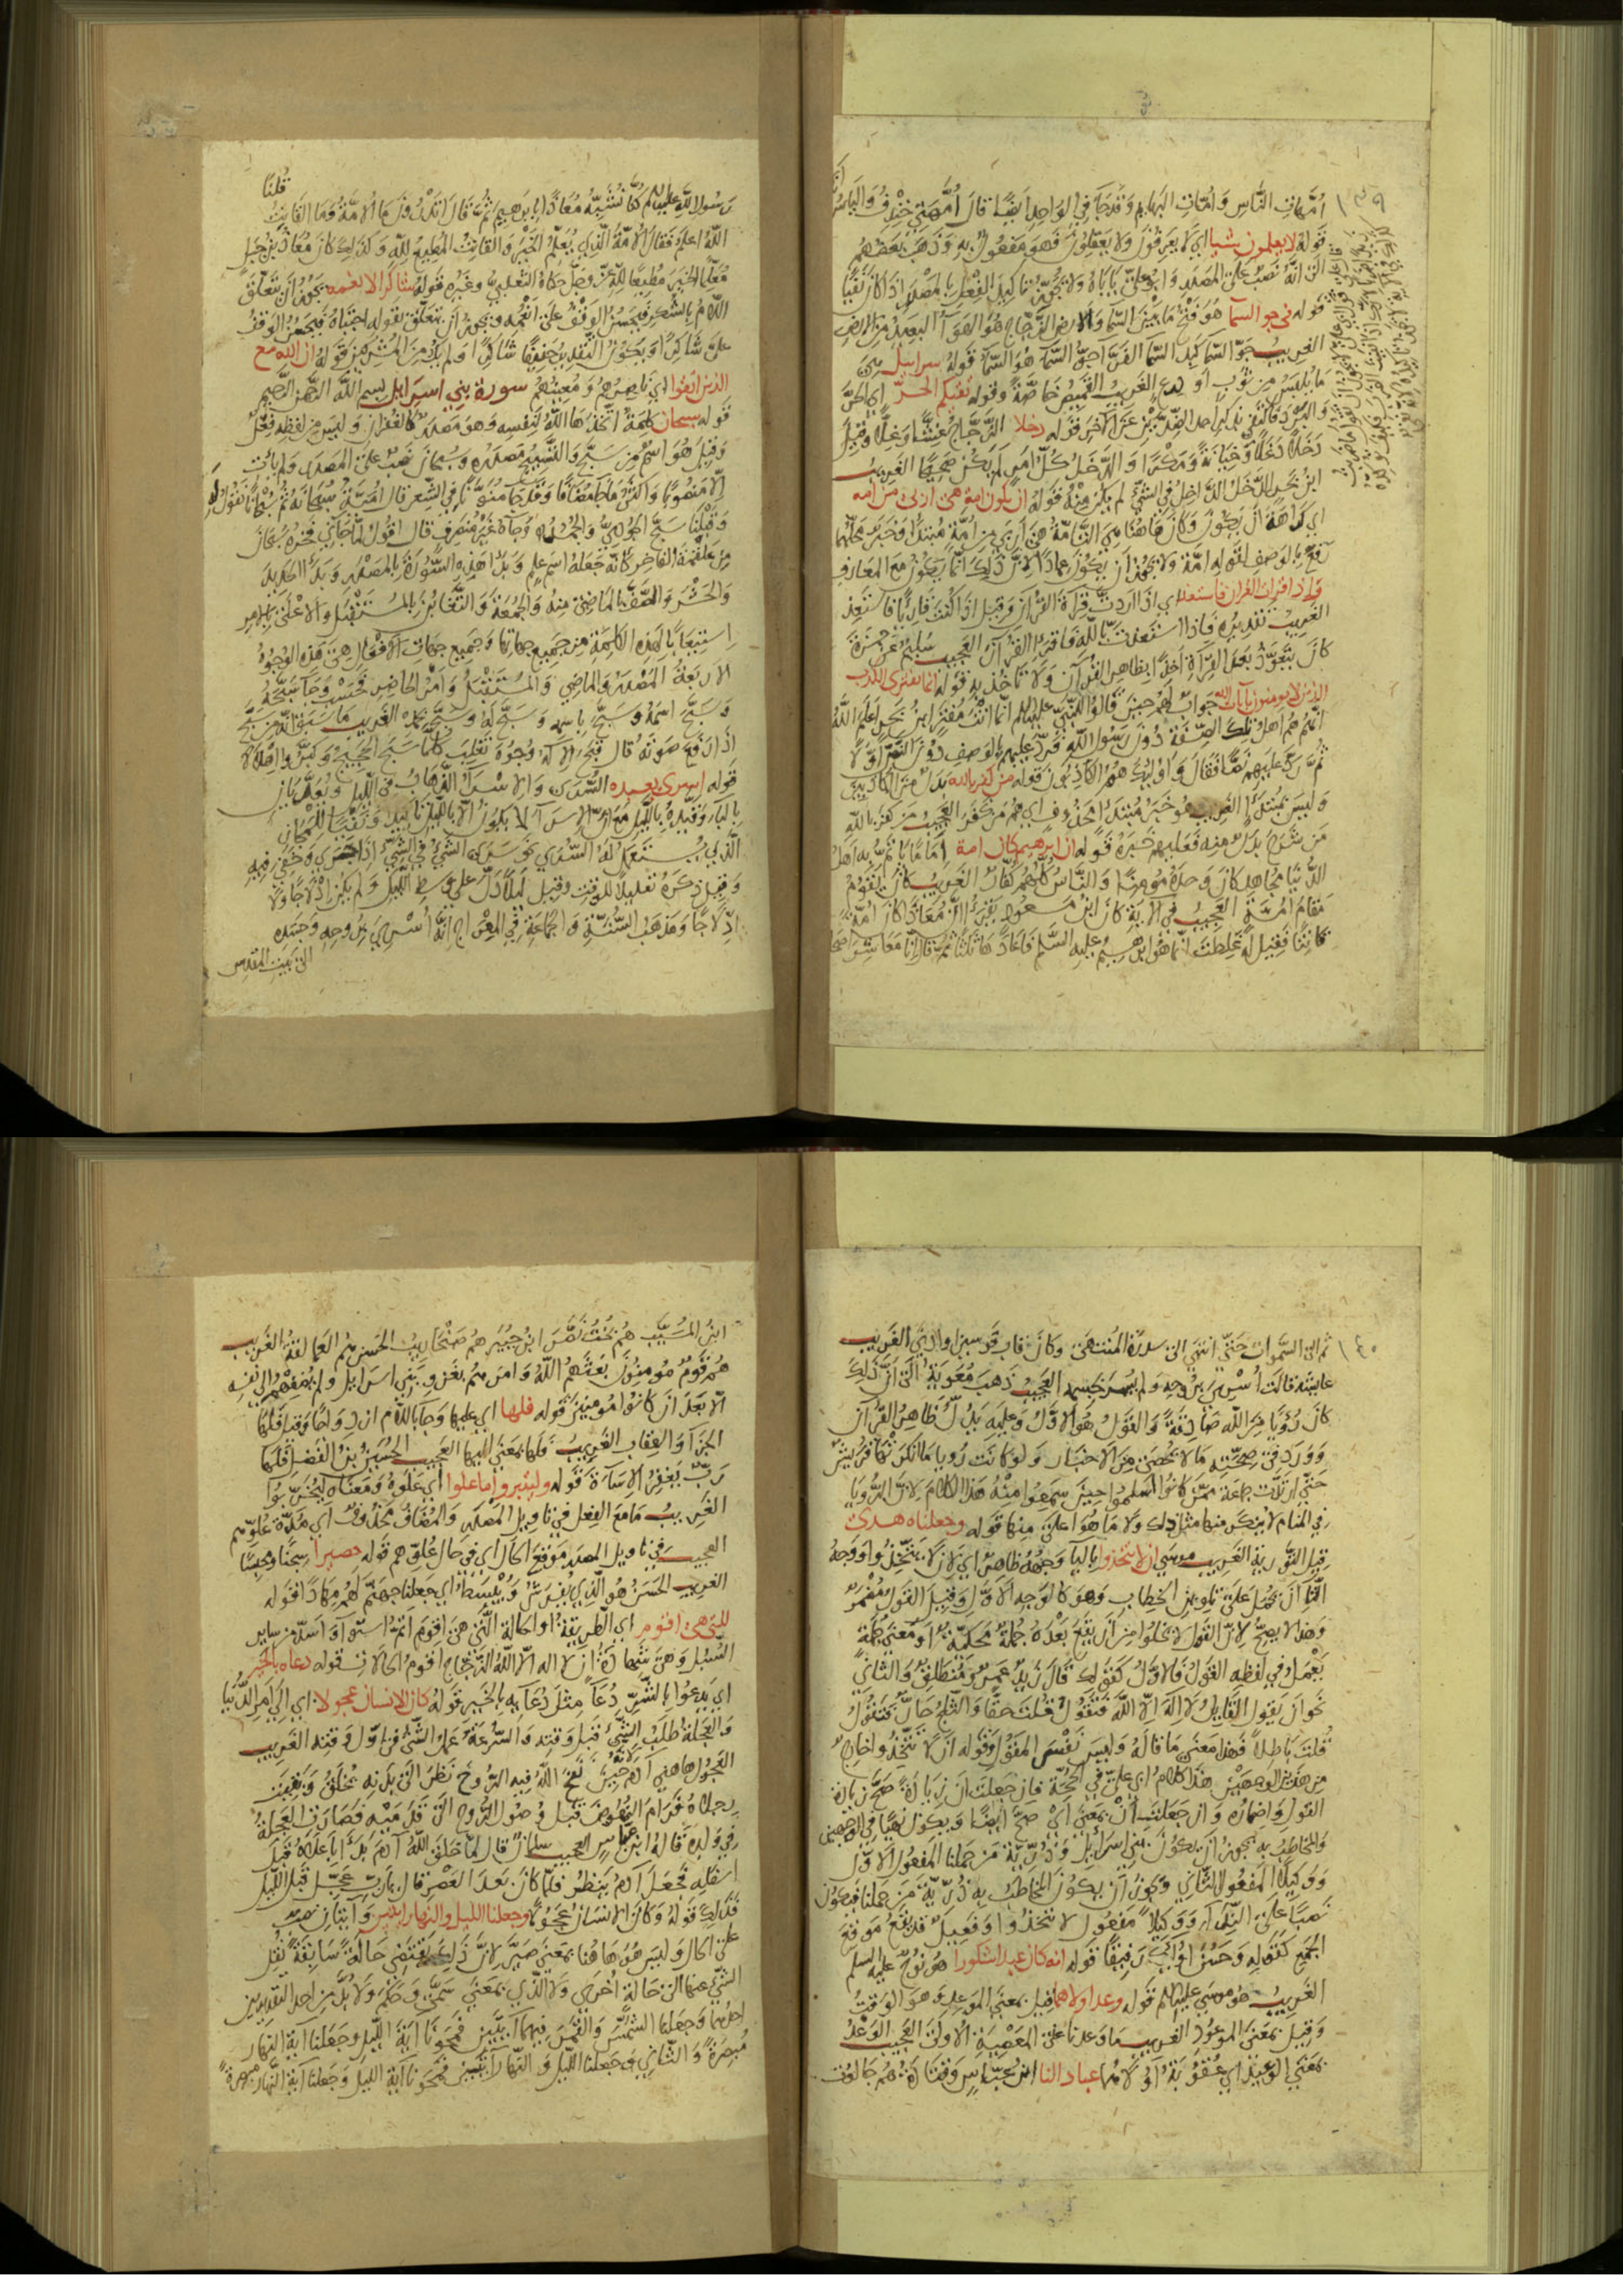 ١٣٩
امّهات النَّاسِ وَامّات البهايم وَقد جَا في الواحِد ايضًا قالَ امّهتي خِنْدِفُ وَالياسُ
قوله لا يعلمون شيا اي لا يعرفون ولا يعقلون فهو مَفعُول به وَذهَبَ بَعضهم
الى انّه نصب على المصدر وَابو علي يَاباهُ ولا يجوّز تاكيد الفعل بالمصدر اذا كان نفيًا
قوله في جو السما هُو فتح ما بَيْن السّما وَالارض الزّجاج هُو الهَوآ البعيد من الارض
الغريب جوّ السما كبد السّما الفرّا جوّ السّمآ هُو السّمآ قوله سرابيل هي
مَا يُلبس من ثوب او درع الغريب القميص خاصّة وقوله تقيكم الحرّ اي الحرّ
وَالبرد فاكتفى بذكر احد الضدّين عن الآخر قوله دخلا الزّجّاج غِشًّا وَغِلًّا وقيل
دَغلًا وَخيانة وَمكرًا وَالدّخل كلّ امر لم يكن صحيحًا الغريب
ابن بحر الدّخل الدّاخل في الشيء لم يكن منه قوله ان تكون امة هى اربى من امه
اي كراهة ان يكون وكان هاهنا هي التّامّة هي اربى من امة مُبتدأ وَخبر محلّهما
رفع بالوصف لقوله امّة ولا يجوز ان يكون عمادًا لانّ ذلك انّما يكون مع المعارف
واذا قرات القران فاستعذ اي اذا اردت قراة القرآن وقيل اذا كنت قاريًا فاستعذ
الغريب تقديره فاذا استعذت باللّه فاقرا القرآن العجيب سليم عن حمزة
كان يتعوّذ بعد القراة اخذًا بظاهر القرآن ولا تاخذ به قوله انما يفترى الكذب
الذين لا يومنون بايات الله جوابٌ لهم حين قالوا للنّبي عليه السلم انّما انت مفتر ابن بحر اعلم اللّهُ
انّهم هم اهل تلك الصّفة دُون رَسُول اللّه فردّ عليهم بالوصف دون التّبرّا اوّلًا
ثمّ ردّ عليهم نصًّا فقال وَاولئك هم الكاذبون قوله من كفر بالله بدل من الكاذبين
وليس بمبتدأ الغريب هو خبر مُبتدا محذوف اي هم من كفر العجيب من كفر باللّه
من شرح بدل منه فعليهم خبره قوله ان ابرهيم كان امة امامًا ياتمّ به اهل
الدّنيا مجاهد كان وحده مومنًا وَالنّاس كلّهم كفّار الغريب كان يقوم
مقام امّة العجيب في الآية كان ابن مسعود يقرأ انّ معاذًا كان امّة
قانتا فقيل له غلطت انّما هو ابرهيم عليه السّلم فاعادها ثلاثا ثمّ قال انّا معاشر اصحاب
رسُول اللّه عليه السلم كنّا نُشبّه معاذًا بابرهيم ثمّ قال اتدرون ما الامّة وما القانت قلنا
اللّه اعلم فقال الامّة الّذي يعلّم الخير وَالقانت المطيع للّه وكذلك كان معاذ بن جبل
معلّمًا للخير مُطيعًا للّه عزّ وجلّ حكاه الثعلبي وغيره قوله شاكرا لانعمه يجوز ان تتعلق
اللام بالشكر فيحسن الوقف على انعمه ويجوز ان يتعلق بقوله اجتباه فيحسن الوقف
على شاكرًا ويكون التقدير حنيفًا شاكرًا ولم يك من المشركين قوله ان الله مع
الذين اتقوا اي ناصرهم وَمعينهم سورة بني اسرايل بسم اللّه الرّحمن الرّحيم
قوله سبحان كلمة اتخذها اللّه لنفسه وهو مصدر كالغفران وليس من لفظه فعل
وقيل هو اسم من سبّح والتسبيح مصدره وسبحان نصب على المصدر ولم يات
الّا منصوبًا وَاكثر ما جا مُضافًا وقد جا منوّنًا في الشّعر قال اميّة سبحانه ثم سبحانا نعوذ له
وقبلنا سبّح الجوديّ والجُمُد وجآ غير منصرف قال اقول لمّا جاني فخره سبحان
من علقمة الفاخر كانّه جعله اسم علم وبدا هذه السّورة بالمصدر وبدأ الحديد
وَالحشر وَالصّفّ بالماضي منه وَالجمعة وَالتّغابن بالمستقبل وَالاعلى بالامر
استيعابًا لهذه الكلمة من جميع جهاتها وجميع جهات الافعال هي هذه الوجوهُ
الاربعة المَصْدر وَالماضي وَالمستقبل وَامْر الحاضر فحسب وجا سبّحهُ
وسبّح اسمهُ وسبّح باسمه وسبّح لهُ وسبّح بحمد الغريب ما سبق انه من سبّح
اذا رفع صوته قال قبّح الاله وجوه تغلب كلّما سبّح الحجيج وكبّروا اهلالا
قوله اسرى بعبده السُّرى والاسرآ الذّهاب في اللّيل ويُعدّيان
بالبآ وقيّده باللّيل مع انّ الاسرآ لا يكون الّا بالليل تاكيد ونفيًا للمجاز
الّذي يستعمل له السّرى نحو سرى الشّيء في الشّيء اذا جرى وخفي فيه
وقيل ذكره تقليلا للوقت وقيل ليلًا دلّ على وسط الليل ولم يكن ادلاجًا ولا
ادّلاجًا ومذهب السّنّة وَالجماعة في المعراج انّه اُسرِيَ بروحه وجسده
الى بيت المقدس
١٤٠
ثم الى السّموات حتّى انتهى الى سدرة المنتهى وكان قاب قوسين او ادنى الغريب
عايشه قالت اُسري بروحه ولم يسر بجسمه العجيب ذهب معوية الى انّ ذلك
كان رُؤيا من اللّه صادقة والقول هو الاوّل وعليه يدلّ ظاهر القرآن
وورد في صحّته ما لا يحصى من الاخبار ولو كانت رويا ما انكرتها قريش
حتى ارتدّت جماعة ممّن كانوا اسلموا حين سمعوا منه هذا الكلام لانّ الرّويا
في المنام لا ينكر منها مثل ذلك ولا ما هو اعلى منها قوله وجعلناه هدى
قيل التّورية الغريب موسى ان لا تتخذوا باليا وجهه ظاهر اي لان لا يتّخذوا ووجهُ
التّا ان يحمل على تلوين الخطاب وهو كالوجه الاوّل وقيل القول مُضمر
وهذا لا يصحّ لانّ القول لا يخلوا من ان يقع بعده جملة محكيّة او معنى جملة
يعمل في لفظه القول فالاوّل كقولك قال زيد عمرٌو منطلقٌ والثاني
نحو ان يقول القايل لا اله الّا اللّه فتقول قلت حقًّا وَالثّلج حارّ فتقول
قلت باطلًا فهذا معنى ما قاله وليس نفس المقول وقوله ان لا تتّخذوا خارج
من هذين الوجهين هذا كلام ابي عليّ في الحجّة فان جعلت ان زيادة صحّ زيادة
القول واضماره وان جعلت ان بمعنى اي صحّ ايضًا ويكون نهيًا في الوجهين
والمخاطب به يجوز ان يكون بني اسرآئل وذرّيّة من حملنا المفعول الاوّل
ووكيلًا المفعول الثاني ويجوز ان يكون المخاطب به ذُرّيّة من حملنا فيكون
نصبًا على النّدآء ووكيلًا مفعول لا تتخذوا وفعيل قد يقع موقع
الجمع كقوله وحَسُن اولئك رفيقًا قوله انه كان عبدا شكورا هو نوح عليه السلم
الغريب هو موسى عليه السلم قوله وعد اولاهما قيل بمعنى الموعد وهو الوقت
وقيل بمعنى الموعُود الغريب ما وعدنا على المعصية الاولى العجيب الوعد
بمعنى الوعيد اي عقوبة اولاهما عبادا لنا ابن عبّاس وقتادة هم جالوت
ابن المسيّب هم بخت نصّر ابن جبير هم سنحاريب الحسن هم العمالقة الغريب
هم قوم مومنون بعثهم اللّه وامرهم بغزو بني اسرايل ولم يضفهم الى نفسه
الّا بعد ان كانوا مومنين قوله فلها اي عليها وجا باللام ازدواجًا وقيل فلها
الجزآ والعقاب الغريب فلها بمعنى اليها العجيب الحُسَيْن بن الفضل فلها
ربّ يغفر الاسآة قوله وليتبروا ما علوا اي علوه ومعناه ليخرّبوا
الغريب ما مع الفعل في تاويل المصدر والمضاف محذوف اي مدّة علوّهم
العجيب في تاويل المصدر موقع الحال اي في حال علوّهم قوله حصيرا سجنًا ومحبسًا
الغريب الحسن هو الّذي يُفرش ويُبسط اي جعلنا جهنّم لهم مهادًا قوله
للتى هى اقوم اي الطريقة او الحالة الّتي هي اقوم اتمّ استوآ واسدّ من ساير
السّبل وهي شهادة ان لا اله الّا اللّه الزّجّاج اقوم الحالات قوله دعاه بالخير
اي يدعوا بالشّرّ دعاً مثل دعآيه بالخير قوله كان الانسان عجولا اي الى امر الدّنيا
والعجلة طلب الشّيء قبل وقته والسّرعة عمل الشّيء في اوّل وقته الغريب
العجول هاهنا آدم حين نفخ اللّه فيه الرّوح نظر الى بدنه يخلق وبقيت
رجلاه فرام النّهوض قبل وصول الرّوح الى قدميه فصارت العجلة
في ولده قاله ابن عبّاس العجيب سلمان قال لمّا خلق اللّه آدم بدأ باعلاه قبل
اسفله فجعل آدم ينظر فلمّا كان بعد العصر قال يا ربّ عجّل قبل اللّيل
فذلك قوله وكان الانسان عجولا وجعلنا الليل والنهار ايتين وآيتان نصب
على الحال وليس هو هاهنا بمعنى صيّر لانّ ذلك يقتضي حالة سابقة نُقل
الشّيء عنها الى حالة اخرى ولا الّذي بمعنى سمّى وحكم ولا بُدّ من احد التقديرين
احدهما وجعلنا الشّمس والقمر فيهما آيتين فمحونا آية الليل وجعلنا آية النهار
مُبصرة والثّاني وجعلنا الليل والنهار ايتين فمحونا آية الليل وجعلنا آية النّهار مبصرة